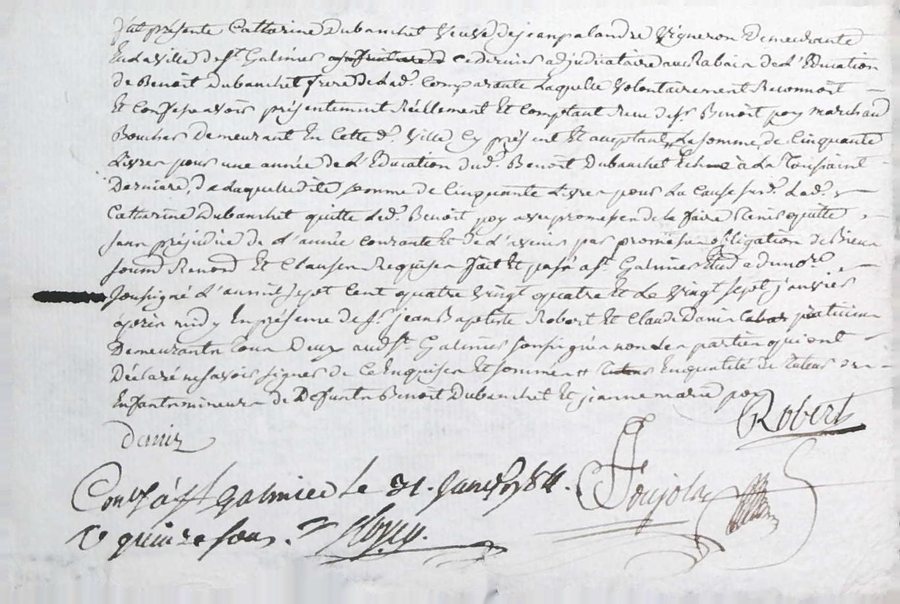 fut présente Catherine Dubanchet veuve de jean palandre vigneron Demeurante
En la ville de St. Galmier cederniere adjudicataire au Rabais de L'Education
de Benoit Dubanchet frere de lad. Comparante Laquelle volontairement Reconnoit
Et Confesse avoir présentement Réellement Et Comptant Receu de Sr. Benoit poy marchand
Boucher Demeurant En Cette d. ville Cy présent Et acceptant La somme de Cinquante
Livres pour une année de L'Education dud. Benoit Dubanchet Echue à La Toussaint
Derniere, de laquelle dite somme de Cinquante Livres pour La Cause susd. Lad.
Catharine Dubanchet quitte led. Benoit poy avec promesse de le faire tenir quitte
sans préjudice de L'année Courante Et de L'avenir par promesse obligation de Biens
soumō Renonō Et Clauses Requises fait Et passé a St. Galmier Etude du nore.
soussigné L'an mil sept Cent quatre vingt quatre Et Le vingt sept janvier
après midy En présence de Sr. jean Baptiste Robert Et Claude Daniz praticiens
Demeurants Tous Deux aud. St. Galmier soussignés non Les parties qui ont
Déclaré ne savoir signer de Ce Enquises Et sommées # En qualité de Tuteur des
Enfants mineurs de Defunts Benoit Dubanchet Et jeanne marie poy
Robert
Daniz
Conlé à St galmier Le 31. Janv. 1784.
Rç quinze sous.